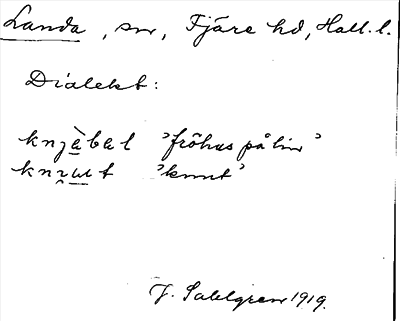 Landa, sn, Fjäre hd, Hall. l.
Dialekt:
knjàbəl 'fröhus på lin'
knut 'knut'
J. Sahlgren 1919.